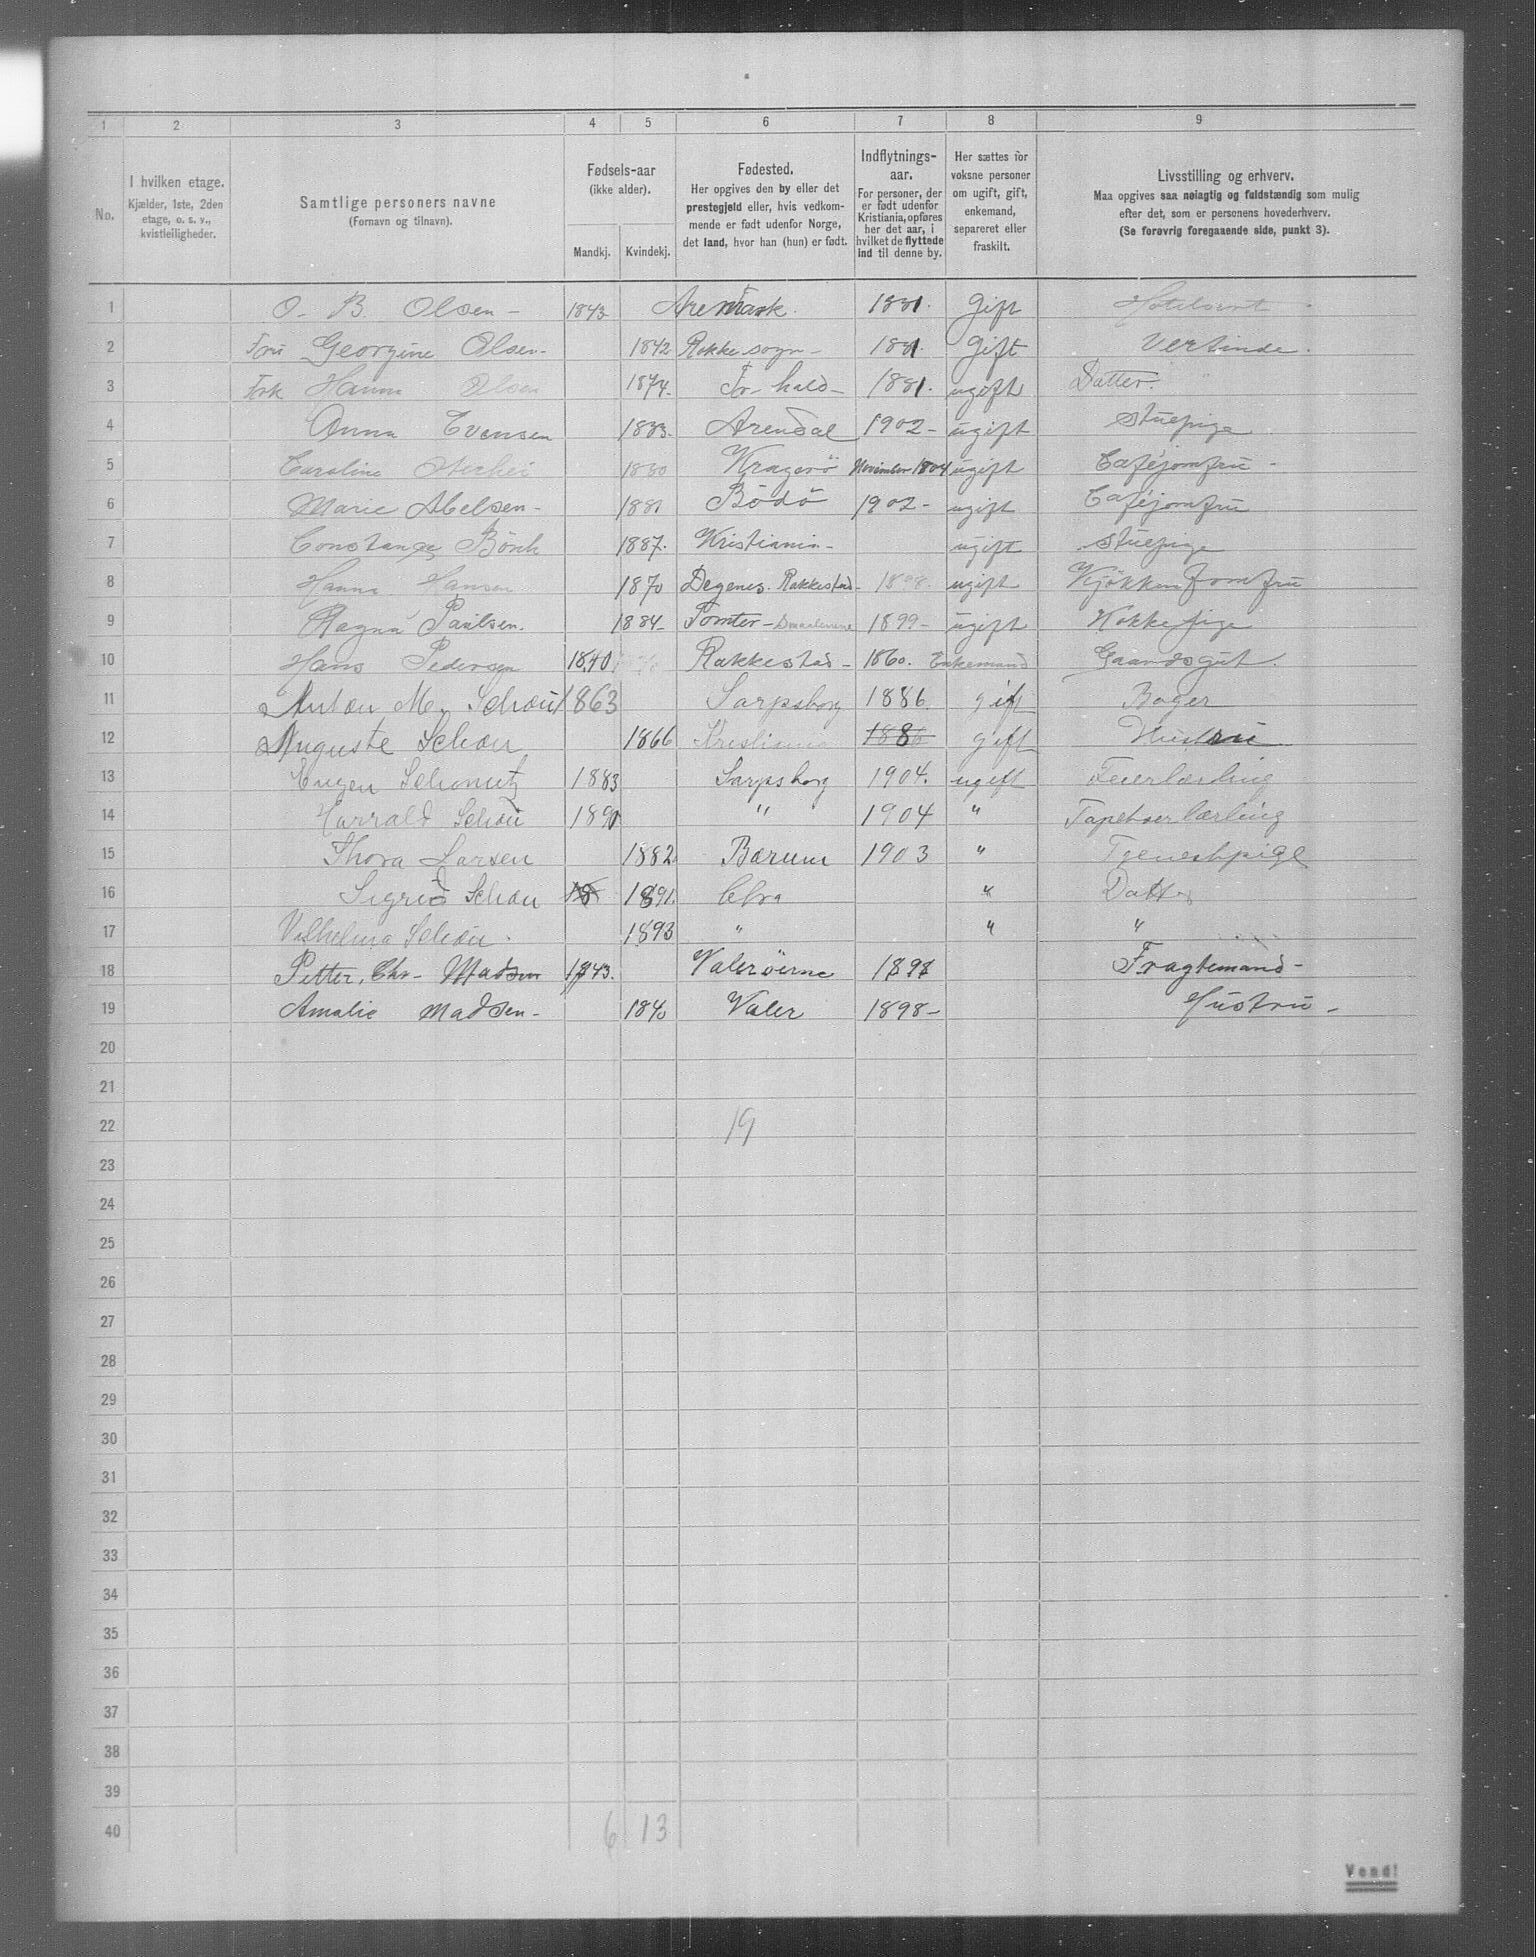 1 2 3 4 5 6 7 8 9
No.
I hvilken etage.
Kjælder, 1ste, 2den
etage, o. s. v.,
kvistleiligheder.
Samtlige personers navne
(Fornavn og tilnavn).
Fødsels-aar
(ikke alder).
Mandkj. Kvindekj.
Fødested.
Her opgives den by eller det
prestegjeld eller, hvis vedkom-
mende er født udenfor Norge,
det land, hvor han (hun) er født.
Indflytnings-
aar.
For personer, der
er født udenfor
Kristiania, opføres
her det aar, i
hvilket de flyttede
ind til denne by.
Her sættes for
voksne personer
om ugift, gift,
enkemand,
separeret eller
fraskilt.
Livsstilling og erhverv.
Maa opgives saa nøiagtig og fuldstændig som mulig
efter det, som er personens hovederhverv.
(Se forøvrig foregaaende side, punkt 3).
1 O. B. Olsen - 1843 Aremark. 1881. Gift Hotelvert
2 Fru Georgine Olsen - 1842 Rakke sogn - 1881. Gift Vertinde.
3 Frk Hanna Olsen 1874. Fr-hald - 1881. ugift Datter.
4 Anna Evensen 1883. Arendal 1902 - ugift Stuepige
5 Caroline 1880 Kragerö November 1904 ugift Caféjomfru -
6 Marie Abelsen - 1881 Bodö 1902 - ugift Caféjomfru
7 Constance Bönk 1887. Kristiania - ugift Stuepige
8 Hanna Hansen 1870 Degenes. Rakkestad - 1898. ugift Kjökkenjomfru
9 Ragna Paulsen. 1884 - Tomter - Smaalenene 1899 - ugift Kokkepige
10 Hans Pedersen 1840 Rakkestad - 1860. Enkemand Gaardsgut.
11 Anton M. Schou 1863 Sarpsborg 1886. gift Bager
12 Auguste Schou 1866 Kristiania 1886 gift Hustru
13 Eugen 1883 Sarpsborg 1904. ugift
14 Harrald Schou 1890 " 1904 " Tapetserlærling
15 Thora Larsen 1882 Bærum 1903 " Tjenestpige
16 Sigrid Schou 18 1891. Chra " Datter
17 Vilhelma Schou. 1893 " " "
18 Petter, Chr - Madsen 1843. Valeröerne 1898 Fragtemand -
19 Amalie Madsen - 1840 Valer 1898 - Hustru -
20
21
22 19
23
24
25
26
27
28
29
30
31
32
33
34
35
36
37
38
39
40 6 13
Vend!